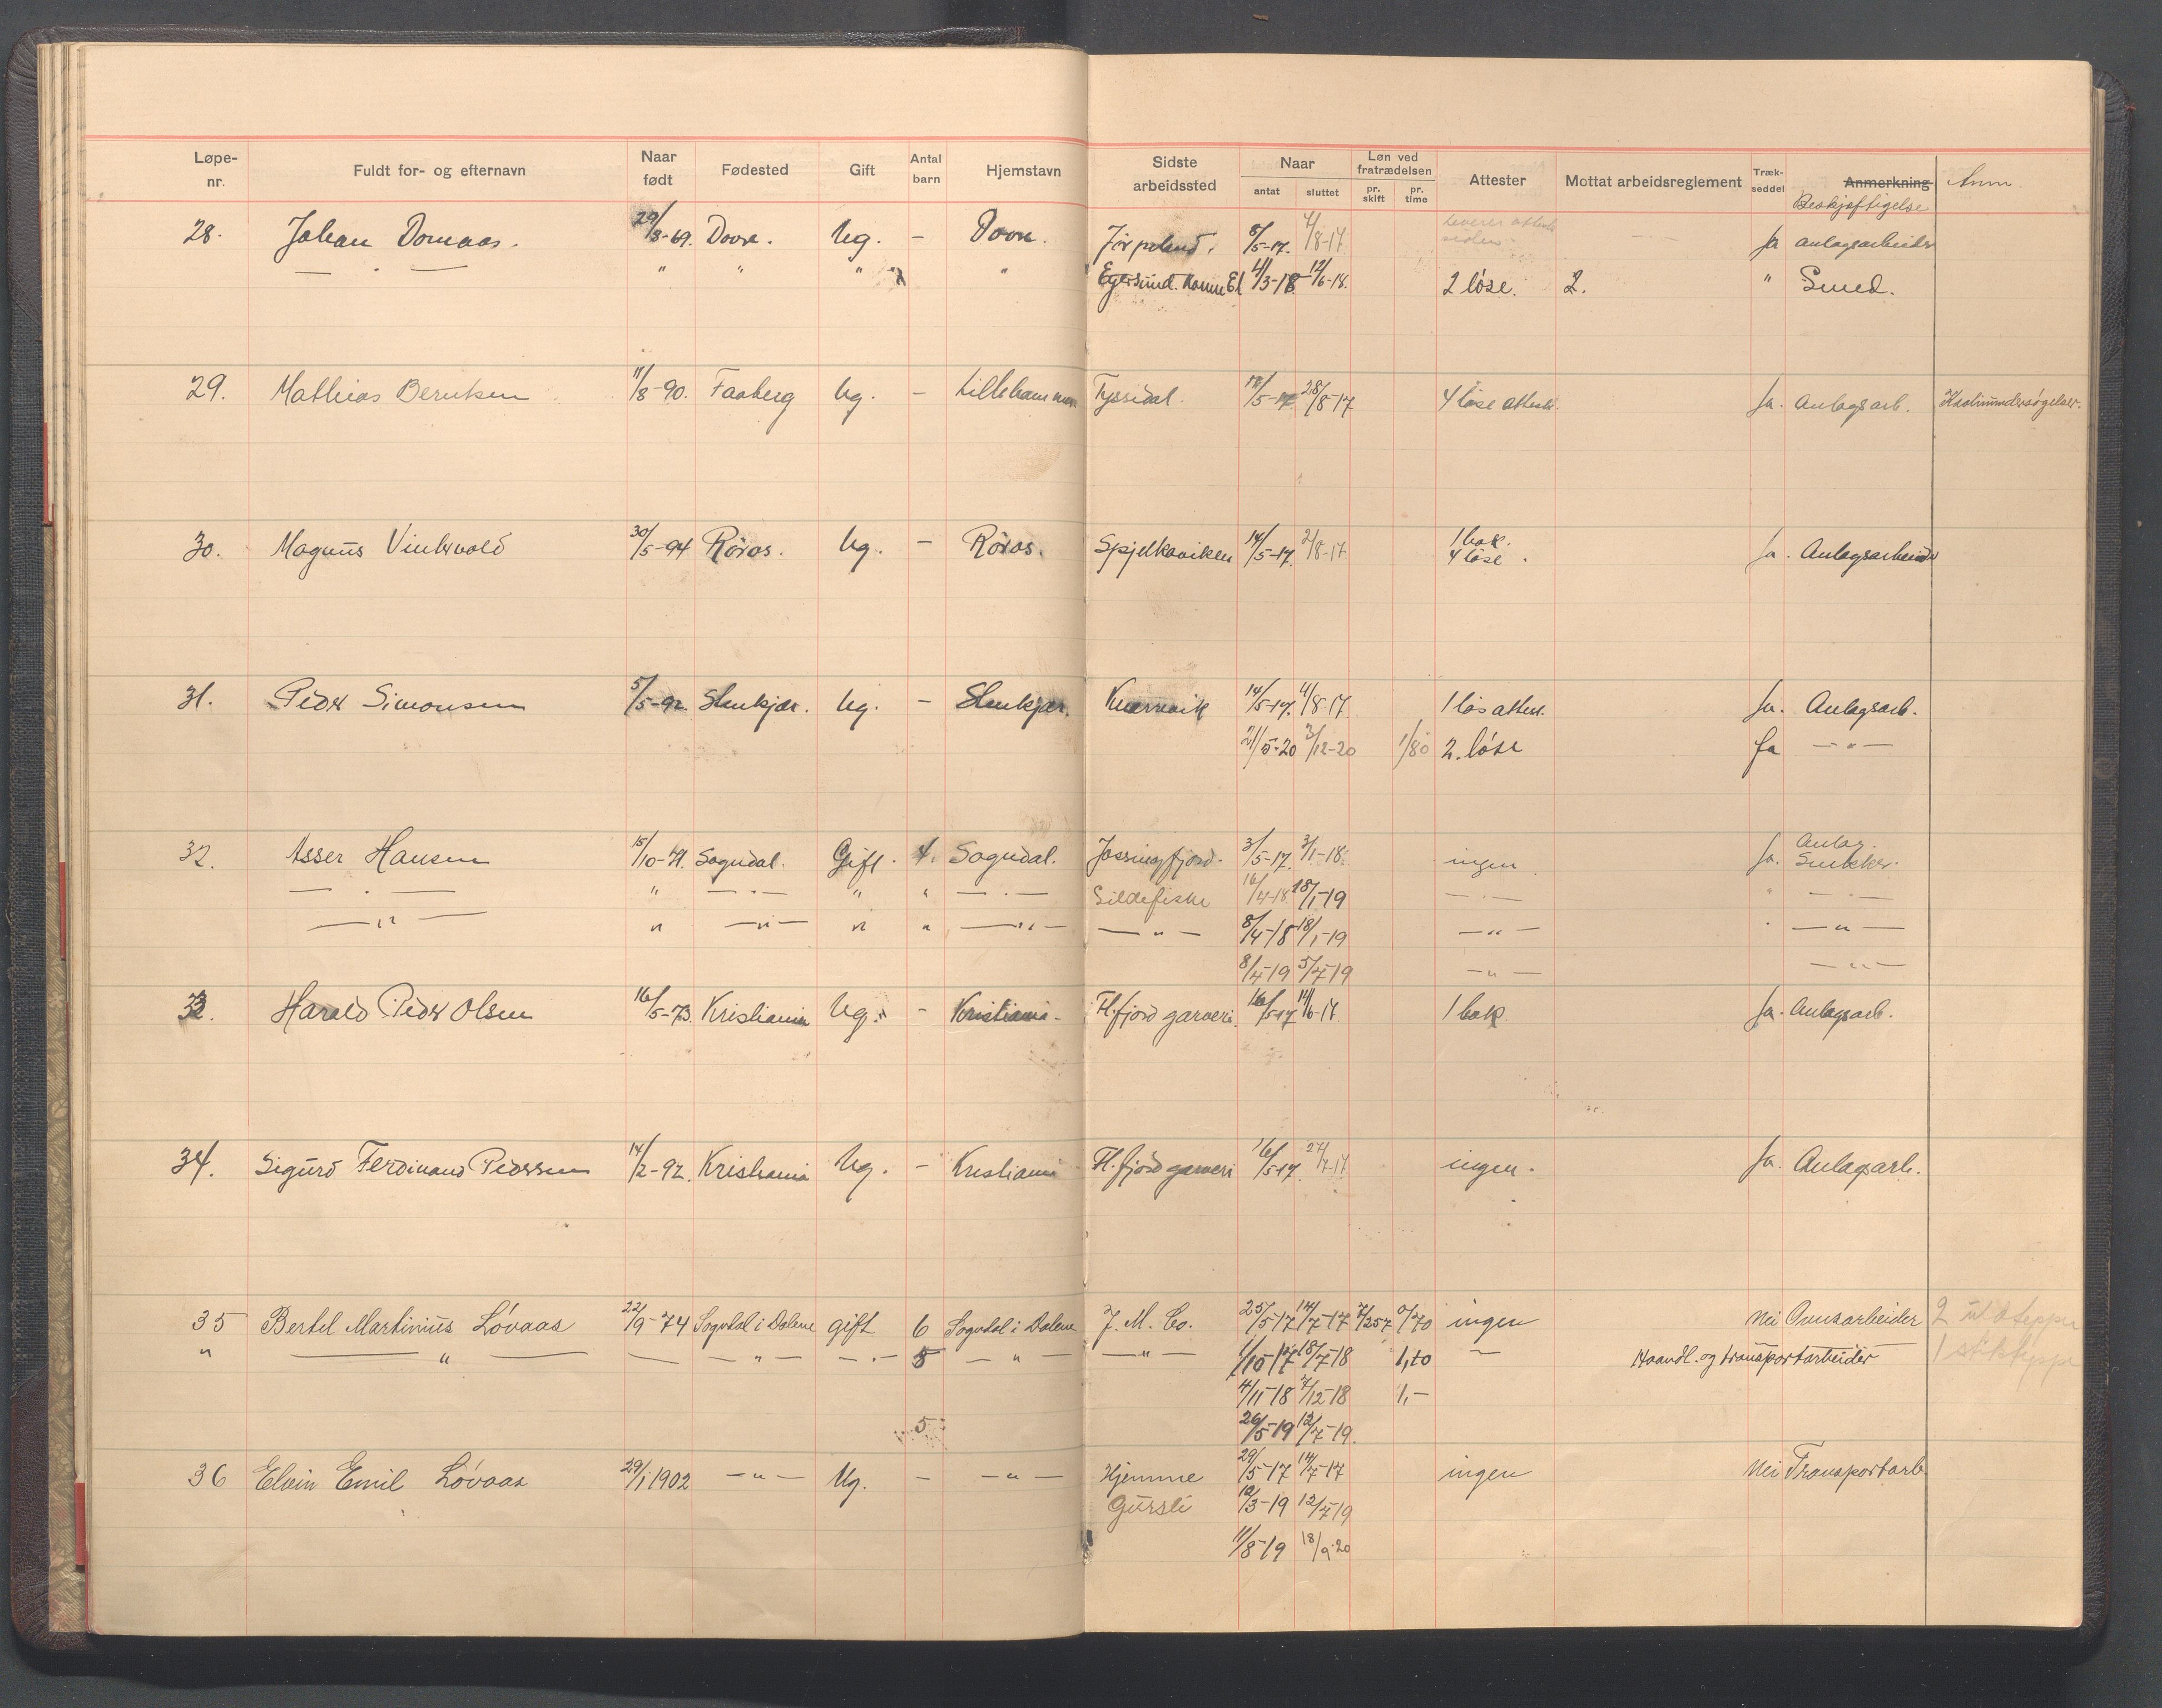 Løpe-nr. | Fuldt for- og efternavn | Naar født | Fødested | Gift | Antal barn | Hjemstavn | Sidste arbeidssted | Naar antat | sluttet | Løn ved fratrædelsen pr. skift | pr. time | Attester | Mottat arbeidsreglement | Træk-seddel | Anmerkning Beskjæftigelse | Anm.
28. Johan Domaas. 29/3-69. Dovre. Ug. — Dovre. Jørpeland. 8/5-17. 4/8-17 ja anlagsarbeider
— " — " " " " Egersund. Komm El 4/3-18 12/6-18. 2 løse. 2. " Smed.
29. Mathias Berntsen 11/8-90. Faaberg Ug. — Lillehammer Tyssedal. 18/5-17 28/8-17 4 løse attest. Ja. Anlagsarb. Kaolinundersøgelser.
30. Magnus Vintervold 30/5-94 Røros. Ug. — Røros. Spjelkaviken 14/5-17. 2/8-17 1 bok. 4 løse. Ja. Anlagsarbeider
31. Peder Simonsen 5/5-92 Stenkjær. Ug. — Stenkjær. Kvarnvik 14/5-17. 4/8-17 1 løs attest. Ja. Anlagsarb.
21/5-20 3/12-20 1/80 2. løse Ja — " —
32. Asser Hansen 15/10-71. Sogndal. Gift. 4. Sogndal. Jøssingfjord. 3/5-17. 3/1-18. ingen Ja. Anlag. Snekker.
— " — " — " — " " — " — Sildefiske 16/4-18 18/1-19 — " — " — " —
— " — " — " — " " — " — — " — 8/4-18 18/1-19 — " — " — " —
8/4-19 5/7-19 — " — — " —
33. Harald Peder Olsen 16/5-73. Kristiania Ug. — Kristiania. Fl.fjord garveri. 16/5-17 14/6-17 1 bok Ja. Anlagsarb.
34. Sigurd Ferdinand Pedersen 14/2-92. Kristiania Ug. — Kristiania Fl.fjord garveri 16/5-17. 27/7-17 ingen. Ja. Anlagsarb.
35 Bertel Martinius Lóvaas 22/9-74 Sogndal i Dalene gift 6 Sogndal i Dalene J. M. Co. 25/5-17 14/7-17 7/257 0/70 ingen Nei Ovnsarbeider 2 uldteppe
" — " — — — " — — " — 5 — " — — " — 1/10-17 18/7-18 1,to — Haandl. og transportarbeider 1 stikteppe
4/11-18 7/12-18 1,—
5 26/5-19 12/7-19.
36 Elvin Emil Lóvaas 29/1 1902 — " — Ug. — — " — Hjemme 29/5-17 14/7-17 ingen Nei Transportarb.
Gursli 12/3-19 12/7-19
11/8-19 18/9-20